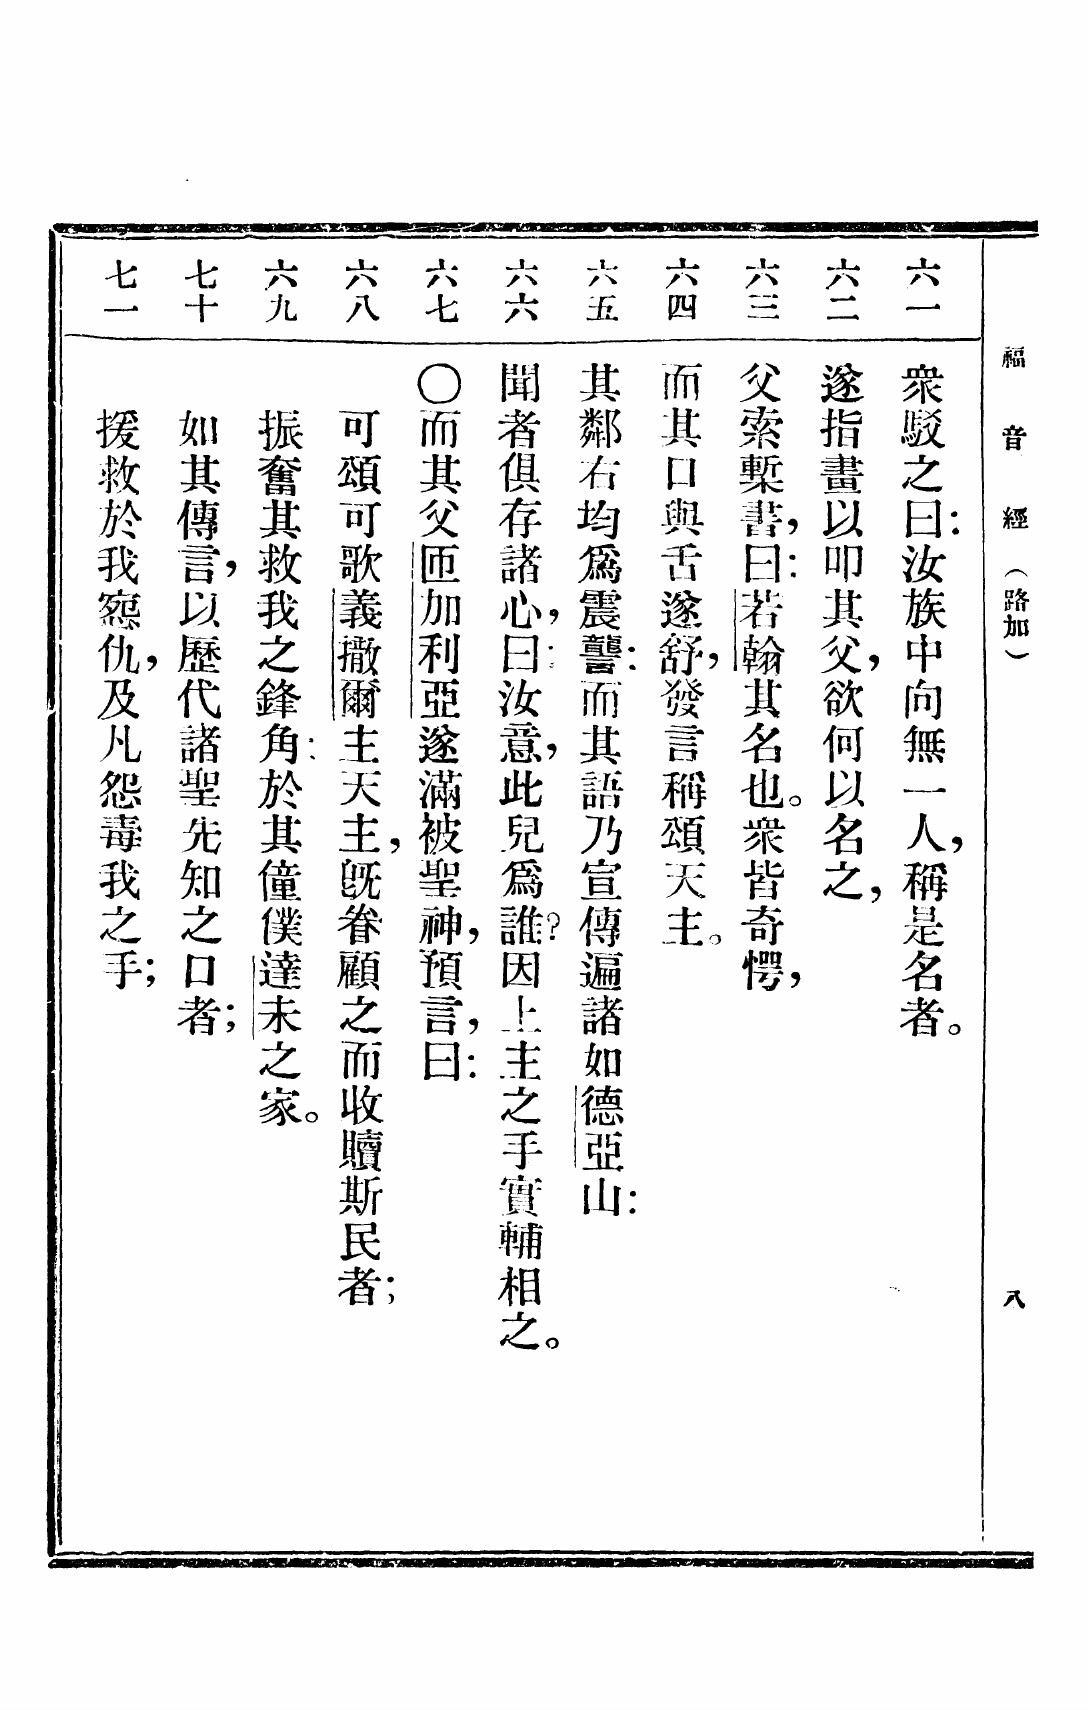 福音經（路加） 八
六一 衆駁之曰：汝族中向無一人，稱是名者。
六二 遂指畫以叩其父，欲何以名之，
六三 父索槧書，曰：若翰其名也。衆皆奇愕，
六四 而其口與舌遂舒，發言稱頌天主。
六五 其鄰右均爲震讋：而其語乃宣傳遍諸如德亞山：
六六 聞者俱存諸心，曰：汝意，此兒爲誰？因上主之手實輔相之。
六七 〇而其父匝加利亞遂滿被聖神，預言，曰：
六八 可頌可歌義撒爾主天主，旣眷顧之而收贖斯民者；
六九 振奮其救我之鋒角：於其僮僕達未之家。
七十 如其傳言，以歷代諸聖先知之口者；
七一 援救於我寃仇，及凡怨毒我之手；